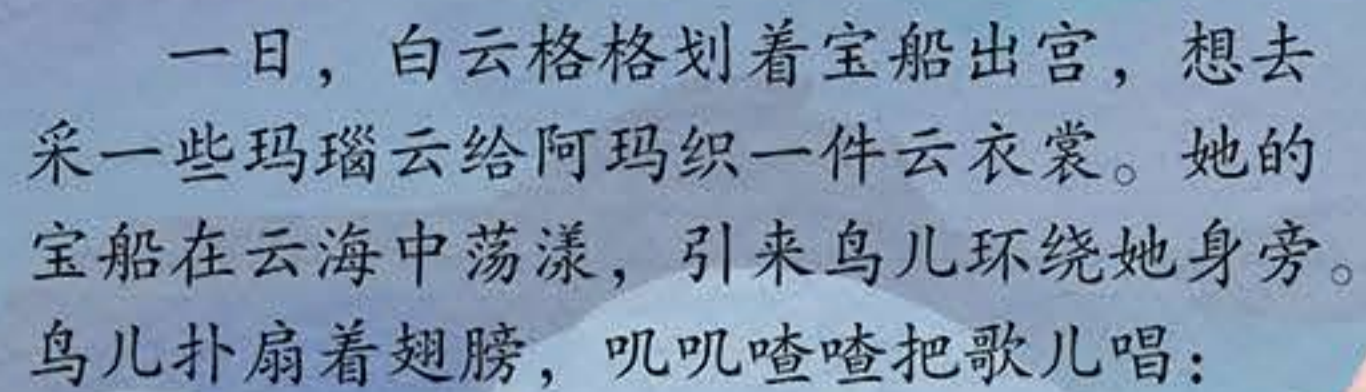 一日，白云格格划着宝船出宫，想去
采一些玛瑙云给阿玛织一件云衣裳。她的
宝船在云海中荡漾，引来鸟儿环绕她身旁。
鸟儿扑扇着翅膀，叽叽喳喳把歌儿唱：